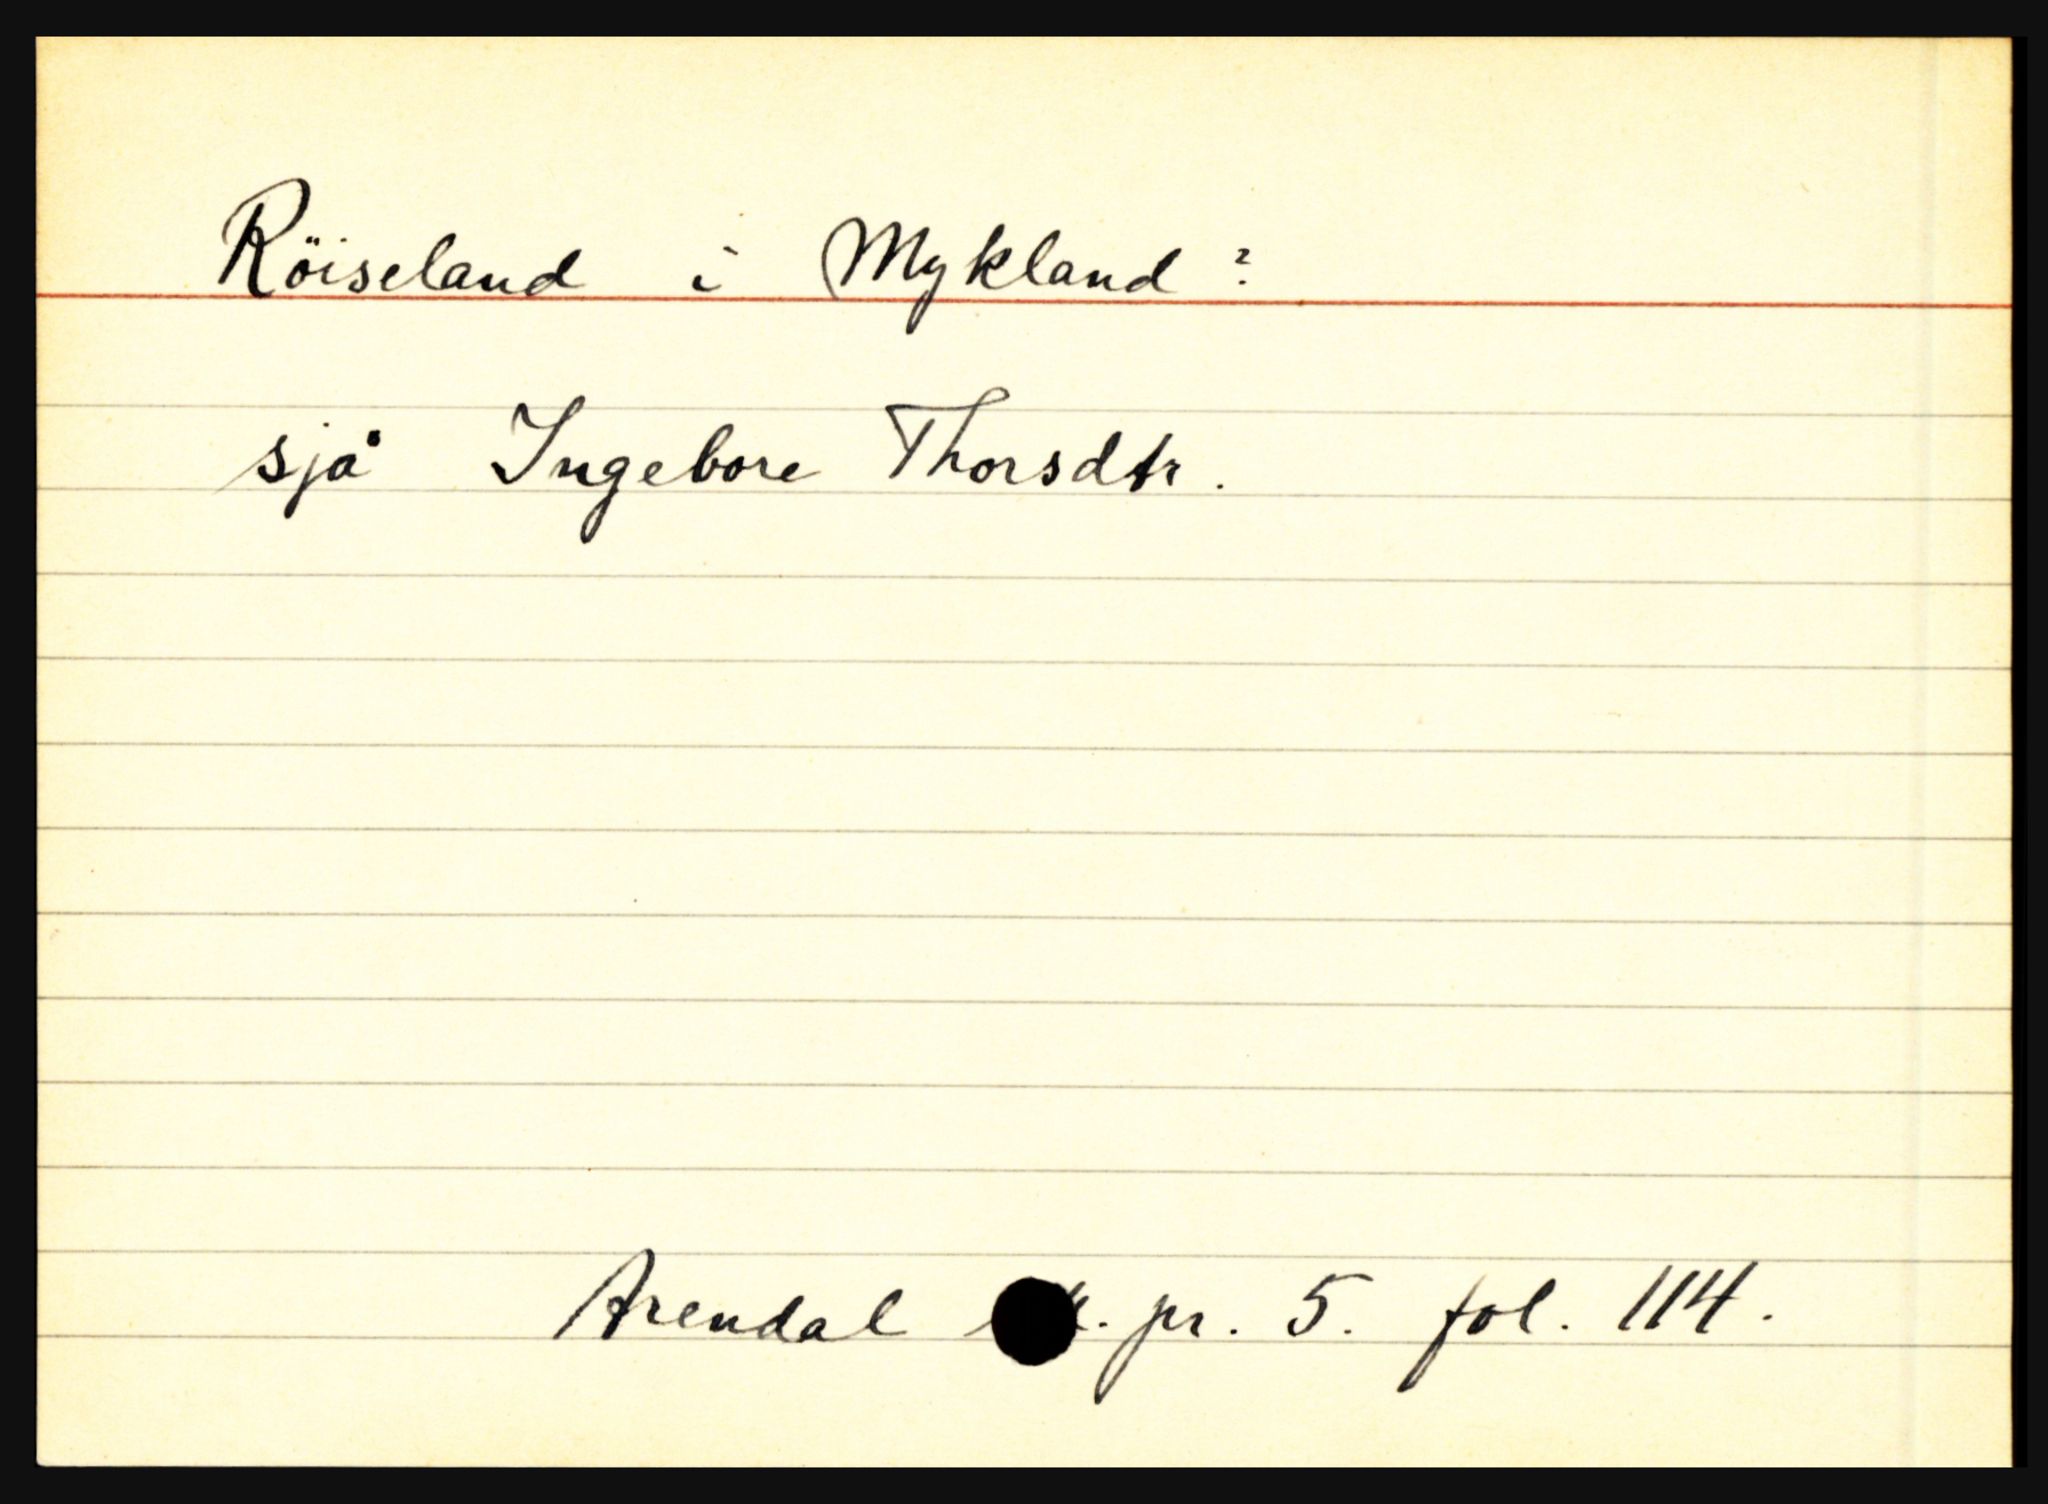 Röiseland i Mykland?
sjå Ingebore Thorsdtr.
Arendal pr. 5. fol. 114.